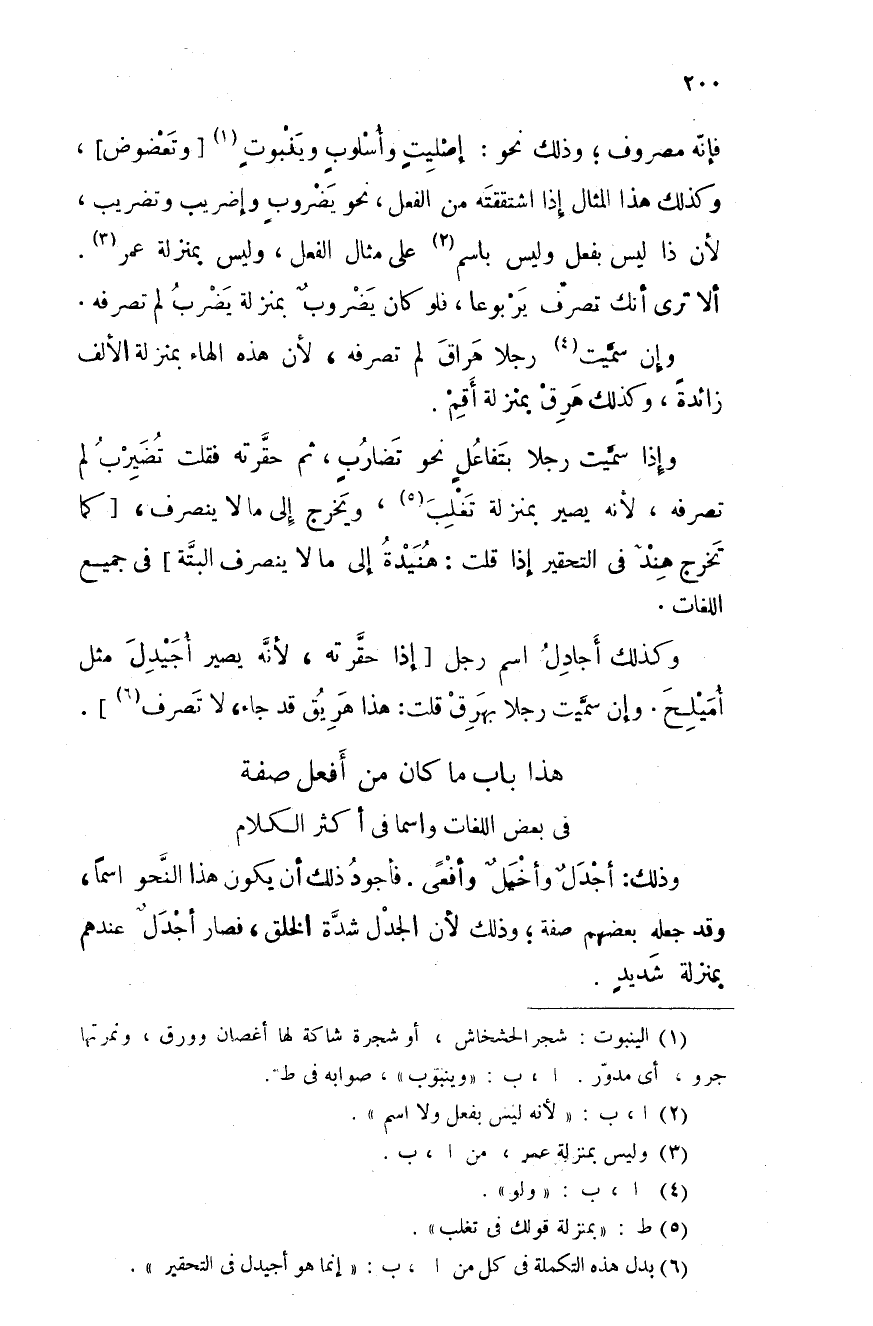 ٢٠٠
فإنّه مصروف ؛ وذلك نحو : إصْلِيتٍ وأُسْلوبٍ ويَنْبوتٍ (١) [ وتَعْضوض] ،
وكذلك هذا المثال إذا اشتققتَه من الفعل ، نحو يَضْروبٍ وإضريب وتضريب ،
لأن ذا ليس بفعل وليس باسم (٢) على مثال الفعل ، وليس بمنزلة عمر (٣) .
ألا ترى أنك تصرف يَرْبوعا ، فلو كان يَضْروبٌ بمنزلة يَضْرِبُ لم تصرفه .
وإن سمَّيت (٤) رجلا هَراقَ لم تصرفه ، لأن هذه الهاء بمنزلة الألف
زائدةً ، وكذلك هَرِقْ بمنزلة أَقِمْ .
وإذا سمَّيت رجلا بتَفاعُلٍ نحو تَضارُبٍ ، ثم حقَّرته فقلت تُضَيْرِبُ لم
تصرفه ، لأنه يصير بمنزلة تَغْلِبَ (٥) ، ويَخرج إلى ما لا ينصرف ، [ كما
تَخرج هِنْدٌ فى التحقير إذا قلت : هُنَيْدَةُ إلى ما لا ينصرف البتَّة ] فى جميع
اللغات .
وكذلك أَجادِلُ اسم رجل [ إذا حقَّرته ، لأنَّه يصير أُجَيْدِلَ مثل
أُمَيْلِحَ . وإن سمَّيت رجلا بهَرِقْ قلت : هذا هَرِيقُ قد جاء، لا تَصرف (٦) ] .
هذا باب ما كان من أَفعل صفة
فى بعض اللغات واسما فى أكثر الكلام
وذلك: أجْدَلٌ وأخْيَلٌ وأفْعًى . فأجودُ ذلك أن يكون هذا النَّحو اسماً ،
وقد جعله بعضهم صفة ؛ وذلك لأن الجدْل شدَّة الخلق ، فصار أجْدَلٌ عندهم
بمنزلة شَديدٍ .
(١) الينبوت : شجر الخشخاش ، أو شجرة شاكة لها أغصان وورق ، وثمرتها
جرو ، أى مدوّر . ا ، ب : «وينبوب» ، صوابه فى ط .
(٢) ا ، ب : « لأنه ليس بفعل ولا اسم » .
(٣) وليس بمنزلة عمر ، من ا ، ب .
(٤) ا ، ب : « ولو» .
(٥) ط : «بمنزلة قولك فى تغلب» .
(٦) بدل هذه التكملة فى كل من ا ، ب : « إنما هو أجيدل فى التحقير » .